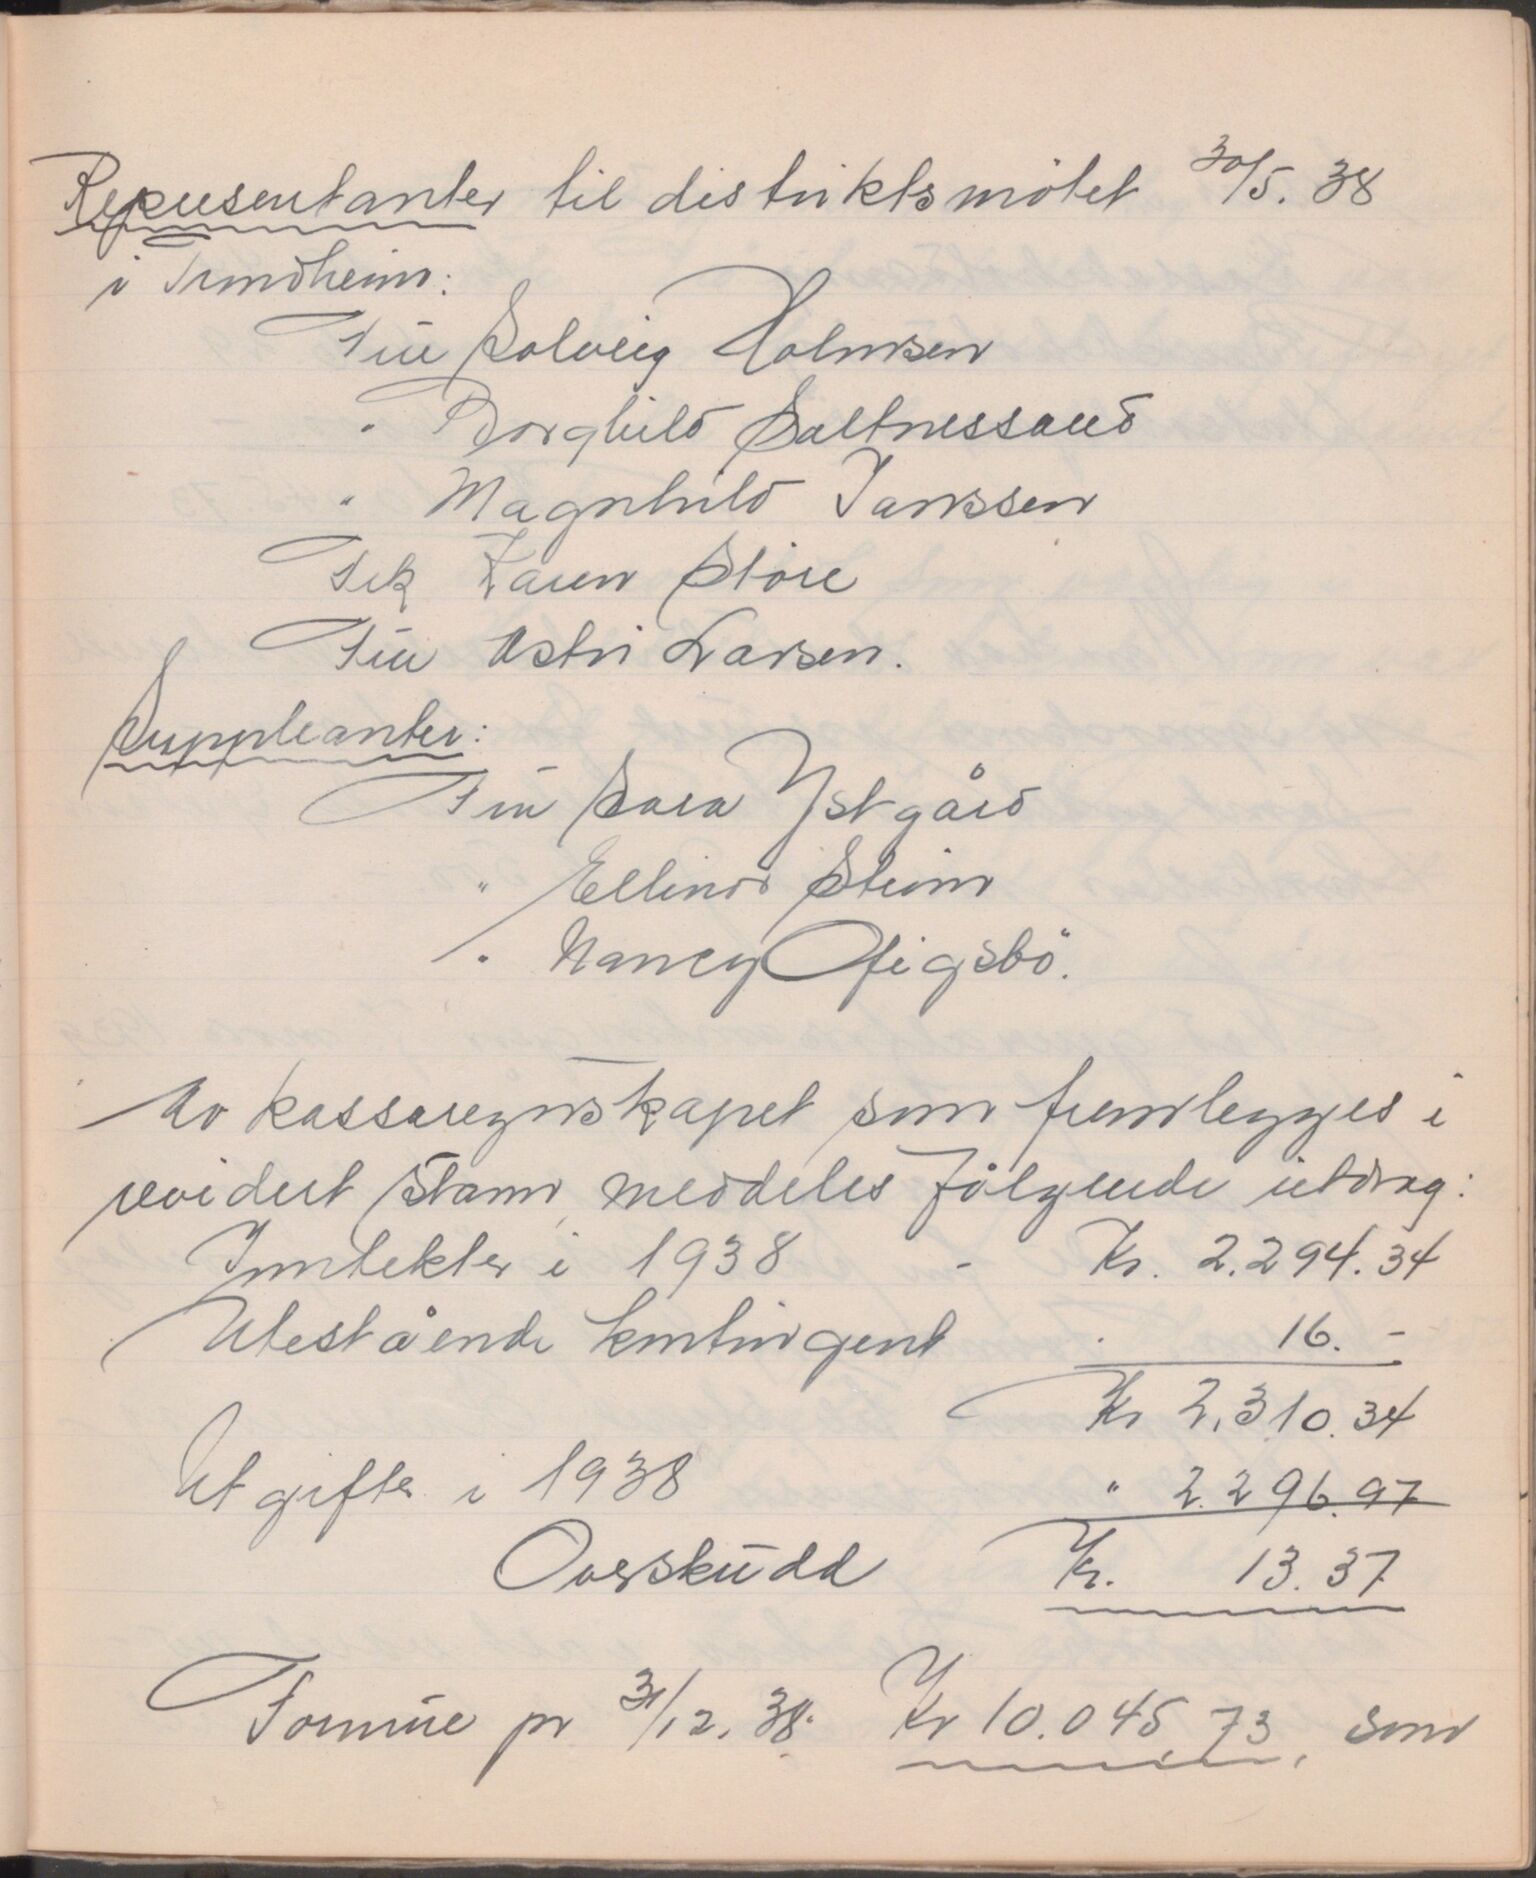 Representanter til distriktsmötet 30/5. 38
i Trondheim:
Fru Solveig Holmsen
" Borghild Saltnessand
" Magnhild Janssen
Frk Karen Störe
Fru Astri Larsen.
Suppleanter:
Fru Sara Ystgård
" Ellinor Stein
" Nancy Ofigsbö.
Av kassaregnskapet som fremlegges i
revidert stann, meddeles følgende utdrag:
Inntekter i 1938 - Kr. 2.294.34
Utestående kontingent " 16. -
Kr 2.310.34
Utgifter i 1938 " 2.296.97
Overskudd Kr. 13.37
Formue pr 31/12. 38. Kr 10.045,73, som